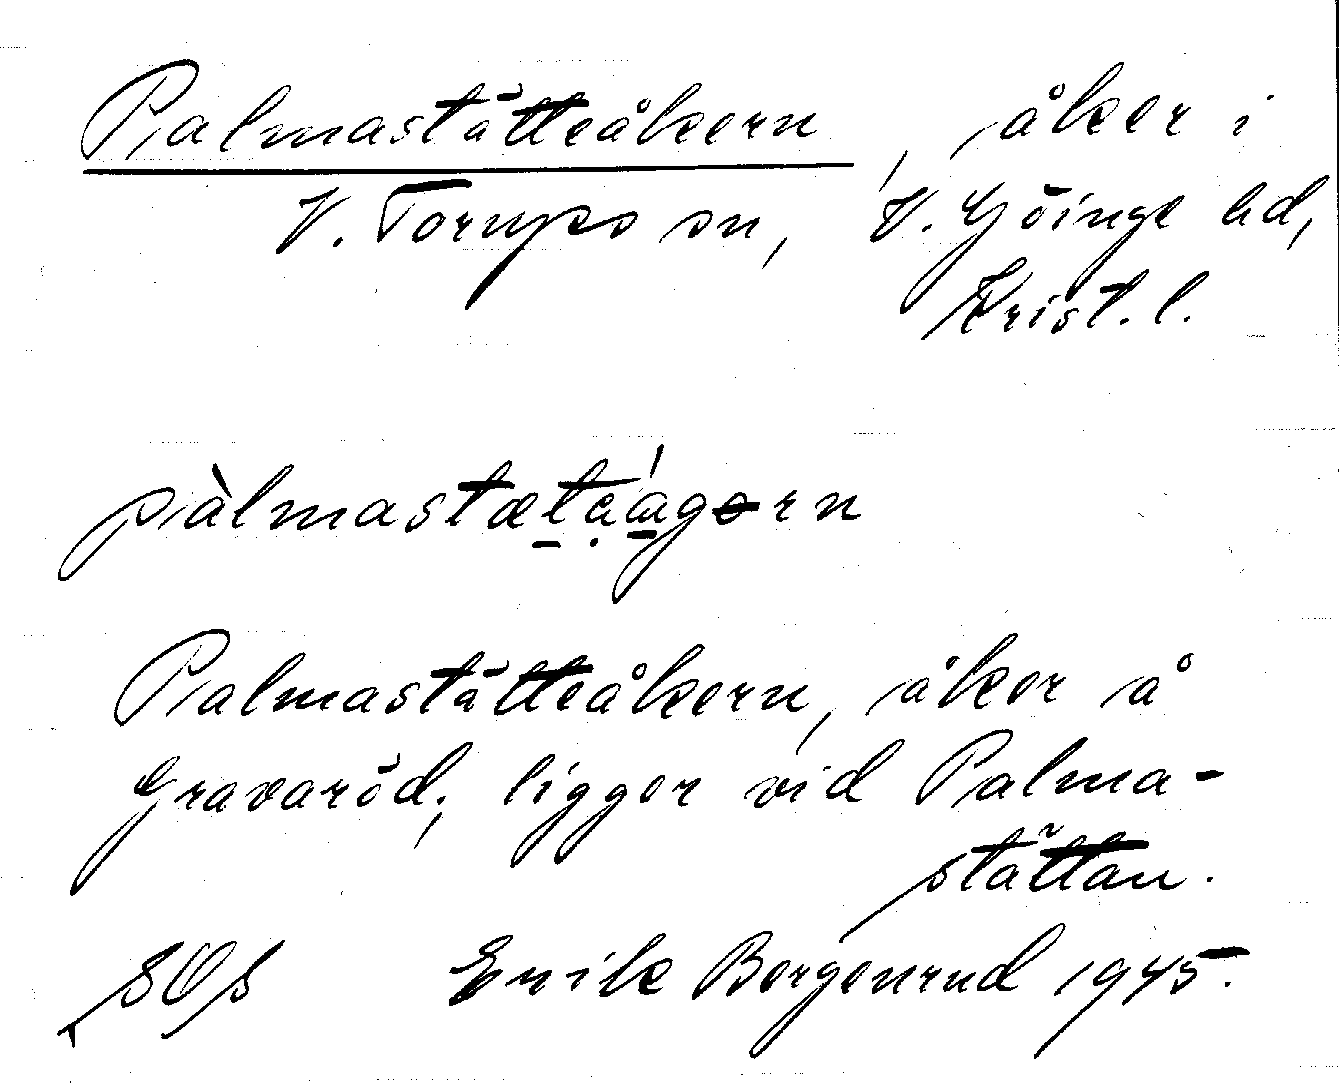 Palmastätteåkern, åker i
V. Torups sn, V. Göinge hd,
Krist. l.
pàlmastætaágərn
Palmastätteåkern, åker å
Gravaröd, ligger vid Palma-
stättan.
SOS Erik Borgenrud 1945.